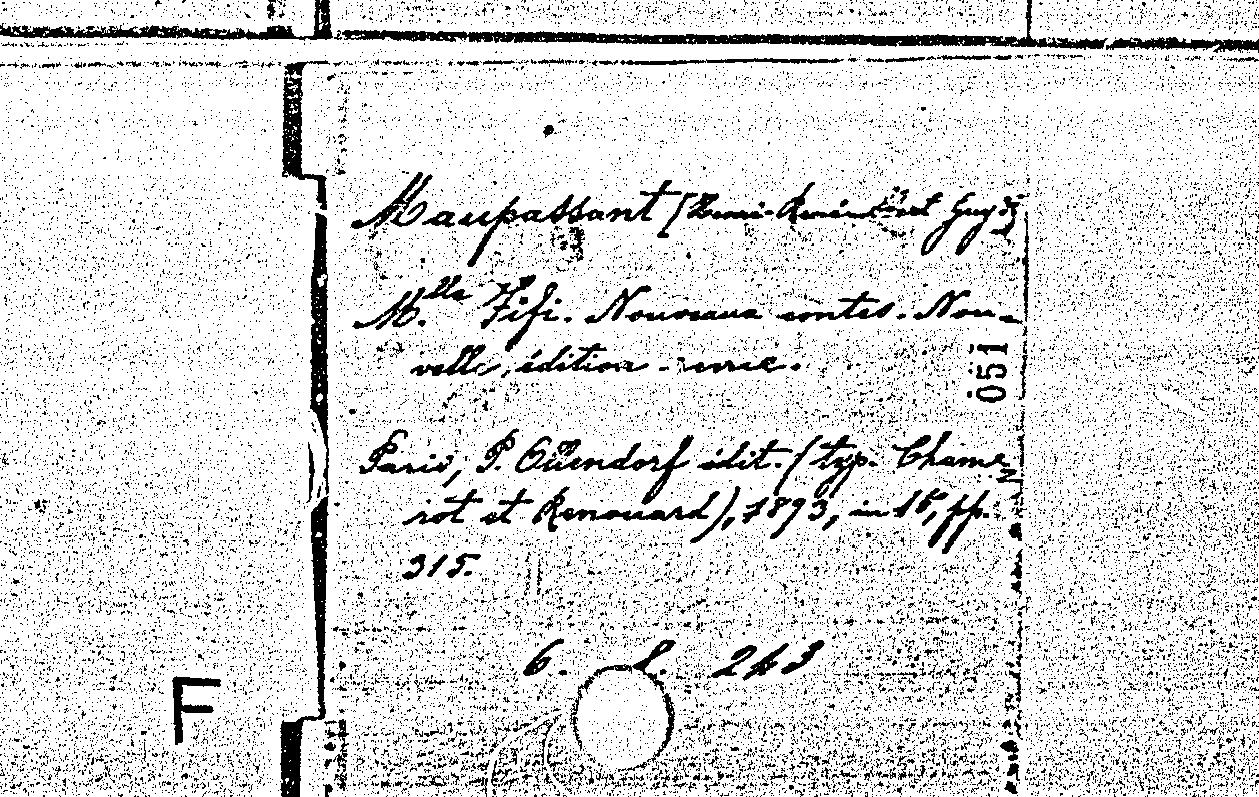 Maupassant (Henri-René-Albert Guy de)
M.lle Fifi. Nouveaux contes. Nou-
velle édition revue.
051
Paris, P. Ollendorf édit. (typ. Chame
rot et Renouard), 1893, in 16, pp.
315.
6. 243
F